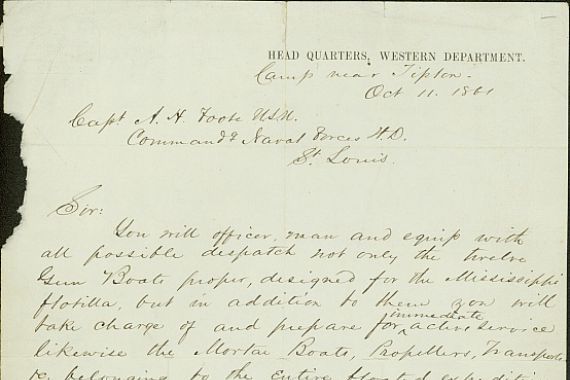 HEAD QUARTERS, WESTERN DEPARTMENT.
Camp near Tipton.
Oct 11. 1861
Capt A. H. Foote USN.
Commandg Naval Forces W. D.
St Louis.
Sir:
You will officer, man and equip with
all possible despatch not only the twelve
Gun Boats proper, designed for the Mississippi
flotilla, but in addition to them you will
immediate
take charge of and prepare for active service
likewise the Mortar Boats, Propellers, Transports
&c belonging to the entire floated expedition